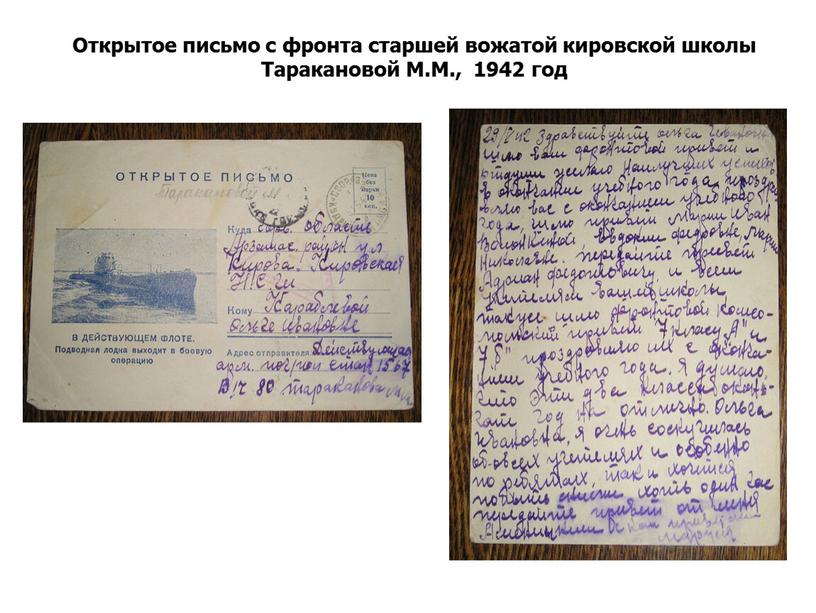 Открытое письмо с фронта старшей вожатой кировской школы
Таракановой М.М., 1942 год
ОТКРЫТОЕ ПИСЬМО
Таракановой М
Цена
без
марки
10
коп.
Куда область
Арзамас. район ул
Кирова. Кировская
В ДЕЙСТВУЮЩЕМ ФЛОТЕ.
Подводная лодка выходит в боевую
операцию
Кому Караблевой
Ольге Ивановне
Адрес отправителя Действующая
арм. 1567
В/ч 80 Тараканова
29/ 42 Здравствуйте Ольга Ивановна
шлю вам фронтовой привет и
желаю наилучших успехов
в окончании учебного года,
вас с окончанием учебного
года, шлю привет Марии Иван
Евдокии Федровне, Марии
Николаевне. передайте привет
и всем
учителям вашей школы,
также шлю фронтовой комсо-
мольский привет 7 класу „А" и
7 „Б" проздровляю их с окона-
нием учебного года. Я думаю,
эти два класса окон-
чат год на отлично. Ольга
Ивановна, я очень соскучилась
об овсех учетелях и особено
по ребятам, так и хочится
побыть хоть один час
передайте привет от меня